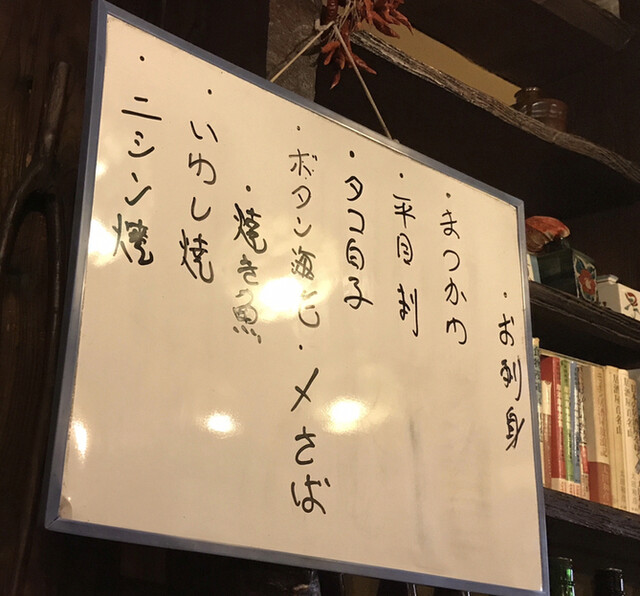 ・お刺身
・まつかわ
・平目刺
・タコ白子
・ボタン海老・〆さば
・焼き魚
・いわし焼
・ニシン焼